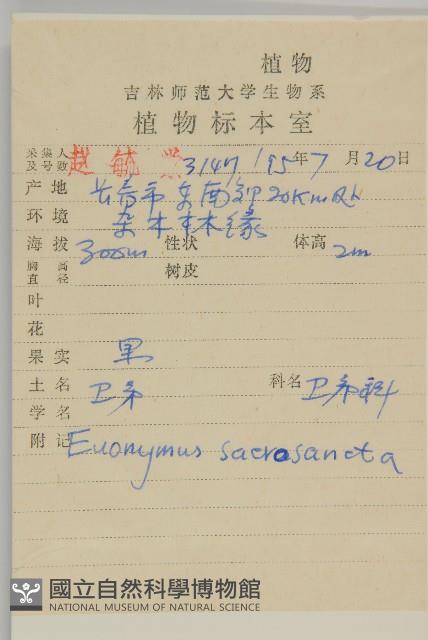 植物
吉林师范大学生物系
植物标本室
采集人及号数 赵毓棠 3147 195 年 7 月 20 日
产地 长春市东南郊20Km以
环境 杂木林缘
海拔 300m 性状 体高 2m
胸高直径 树皮
叶
花
果实 黑
土名 卫矛 科名 卫矛科
学名
附记 Euonymus sacrosancta
國立自然科學博物館
NATIONAL MUSEUM OF NATURAL SCIENCE